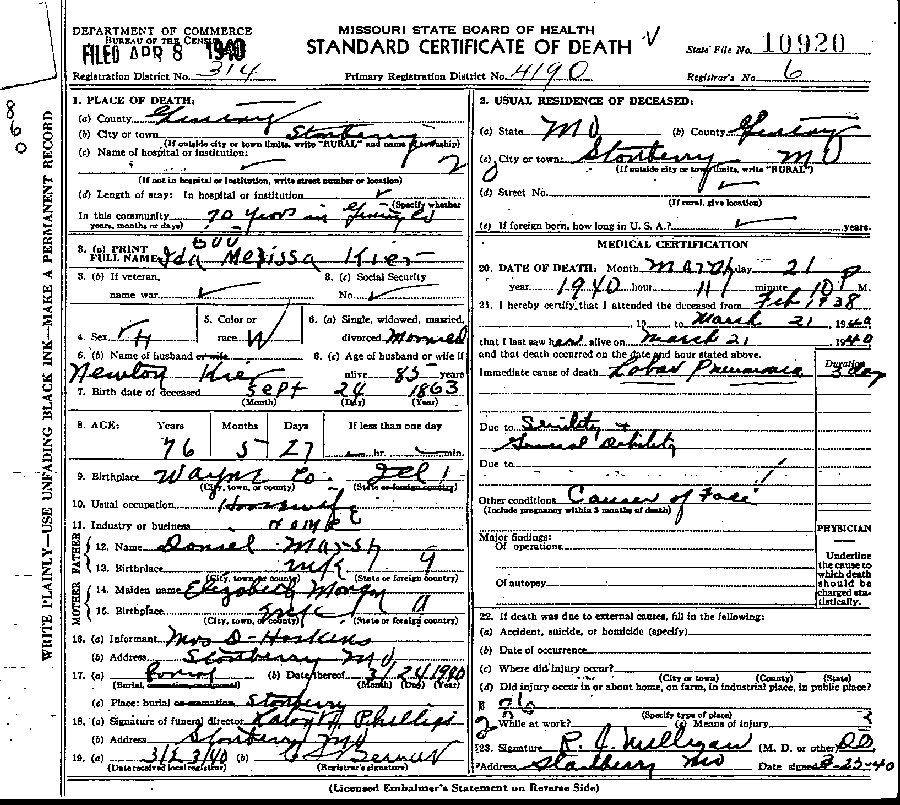 DEPARTMENT OF COMMERCE
BUREAU OF THE CENSUS
FILED APR 8 1940
MISSOURI STATE BOARD OF HEALTH
STANDARD CERTIFICATE OF DEATH
State File No. 10920
Registration District No. 314
Primary Registration District No. 4190
Registrar's No. 6
WRITE PLAINLY—USE UNFADING BLACK INK—MAKE A PERMANENT RECORD
1. PLACE OF DEATH:
(a) County Gentry
(b) City or town Stanberry
(If outside city or town limits, write "RURAL" and name township)
(c) Name of hospital or institution:
2
(If not in hospital or institution, write street number or location)
(d) Length of stay: In hospital or institution
(Specify whether
In this community 70 years in Gentry Co
years, months or days)
3. (a) PRINT FULL NAME Ida Melissa Kier
3. (b) If veteran, name war
3. (c) Social Security No.
4. Sex
5. Color or race W
6. (a) Single, widowed, married, divorced Married
6. (b) Name of husband or wife Newton Kier
6. (c) Age of husband or wife if alive 85 years
7. Birth date of deceased Sept 24 1863
(Month) (Day) (Year)
8. AGE: Years Months Days If less than one day
76 5 27 hr. min.
9. Birthplace Wayne Co. Ill
(City, town, or county) (State or foreign country)
10. Usual occupation Housewife
11. Industry or business Home
FATHER
12. Name Daniel Marsh
13. Birthplace unk 9
(City, town, or county) (State or foreign country)
MOTHER
14. Maiden name Elizabeth
15. Birthplace unk
(City, town, or county) (State or foreign country)
16. (a) Informant Mrs D Hoskins
(b) Address Stanberry Mo
17. (a) Burial (b) Date thereof 3/24 1940
(Burial, cremation, or removal) (Month) (Day) (Year)
(c) Place: burial or cremation Stanberry
18. (a) Signature of funeral director Phillips
(b) Address Stanberry Mo
19. (a) 3/23/40 (b)
(Date received local registrar) (Registrar's signature)
2. USUAL RESIDENCE OF DECEASED:
(a) State MO (b) County Gentry
(c) City or town Stanberry MO
(If outside city or town limits, write "RURAL")
(d) Street No.
(If rural, give location)
(e) If foreign born, how long in U. S. A.? years.
MEDICAL CERTIFICATION
20. DATE OF DEATH: Month March day 21
year 1940 hour 11 minute 10 P M.
21. I hereby certify that I attended the deceased from Feb 1938
19 to March 21, 1940
that I last saw her alive on March 21 1940
and that death occurred on the date and hour stated above.
Duration
Immediate cause of death Lobar Pneumonia 3 day
Due to Senility +
General debility
Due to
Other conditions Cancer of Face
(Include pregnancy within 3 months of death)
PHYSICIAN
Underline the cause to which death should be charged statistically.
Major findings:
Of operations
Of autopsy
22. If death was due to external causes, fill in the following:
(a) Accident, suicide, or homicide (specify)
(b) Date of occurrence
(c) Where did injury occur?
(City or town) (County) (State)
(d) Did injury occur in or about home, on farm, in industrial place, in public place?
(Specify type of place)
While at work? (e) Means of injury
23. Signature R. J. Milligan (M. D. or other) DO
Address Stanberry Mo Date signed 3-23-40
(Licensed Embalmer's Statement on Reverse Side)